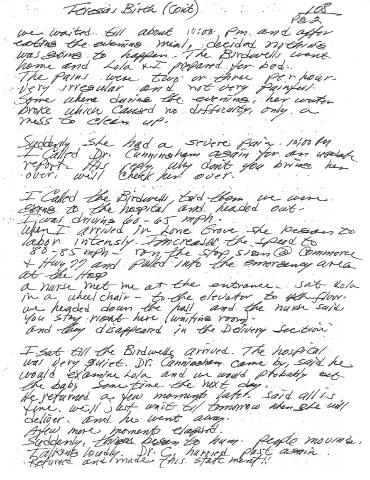 Teresa's Birth (Cont) 108
PG 2
we waited till about 10:00 P.M. and after
eating the evening meal, decided nothing
was going to happen. The Birdwells went
home and Lola & I prepared for bed.
The pains were two or three per hour
very irregular and not very painful.
Some where during the evening, her water
broke which caused no difficulty, only a
mess to clean up.
Suddenly she had a severe pain, 10:00 PM
I Called Dr. Cunningham again for an update
report. His reply, why don't you bring her
over, we'll check her over.
I Called the Birdwells, told them we were
going to the hospital and headed out.
I was driving 60-65 mph.
When I arrived in Lone Grove she began to
labor intensly. I increased the speed to
80-85 mph - ran the stop sign @ Commerce
& Hwy 77 and pulled into the emergency area
at the Hosp
a nurse met me at the entrance. Sat Lola
in a wheel chair - to the elevator to 4th floor.
we headed down the hall and the nurse said
you stay right here (waiting room)
and they disappeared in the Delivery section.
I sat till the Birdwells arrived. The hospital
was very quiet. Dr. Cunningham came by said he
would examine Lola and we would probably get
the baby some time the next day.
He returned a few moments later. Said all is
fine. We'll just wait till tomorrow when she will
deliver. and he went away.
A few more moments elapsed.
Suddenly, things began to hum. people moving.
Talking loudly. Dr. C hurried past again.
Returned and made this statement!!